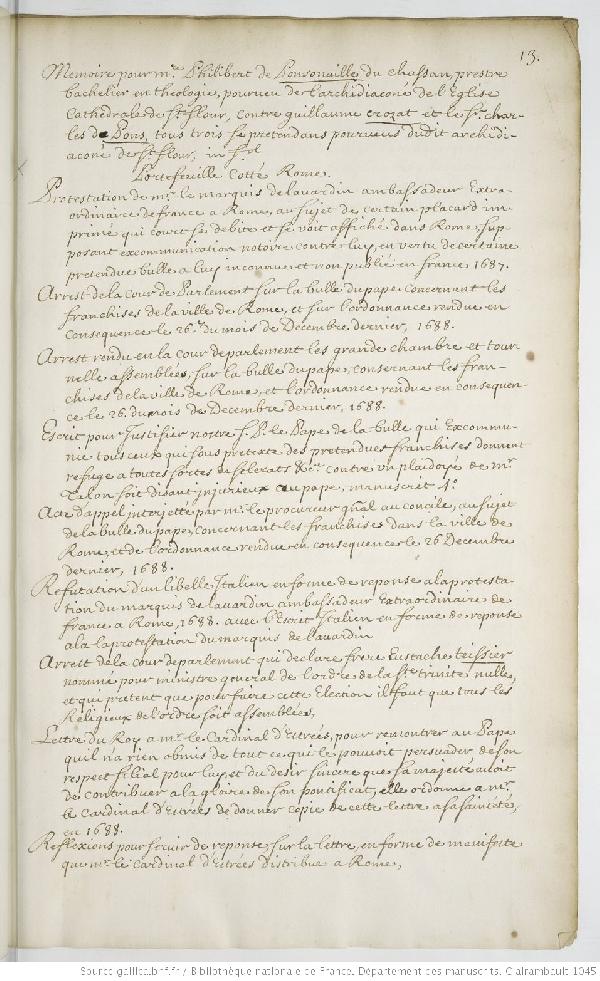 13.
Memoire pour mr. Philibert de Bonsonnille du chassan, prestre
bachelier en theologie, pourveu de l'archidiaconé de l'Eglise
Cathedrale de St. flour, contre guillaume crozat et le Sr. char-
les de Pons, tous trois se pretendans pourveus dudit archidi-
aconé de St. flour, in fol
Portefeuille Cotté Rome.
Protestation de mr. le marquis de lavardin ambassadeur Extra-
ordinaire de france a Rome, au sujet de certain placard im-
primé qui court se debite et se voit affiché dans Rome, sup-
posant excommunication notoire contre luy, en vertu de certaine
pretendue bulle a luy inconnue et non publié en france 1687.
Arrest de la Cour de Parlement sur la bulle du pape concernant les
franchises de la ville de Rome, et sur l'ordonnance rendue en
consequence le 26. du mois de Decembre dernier, 1688.
Arrest rendu en la Cour de parlement les grande chambre et tour-
nelle assemblées, sur la bulle du pape, consernant les fran-
chises de la ville de Rome, et l'ordonnance rendue en consequen-
ce le 26. du mois de Decembre dernier, 1688.
Escrit pour Justifier nostre S. P. le Pape de la bulle qui Excommu-
nie tous ceux qui sous pretexte des pretendues franchises donnent
refuge a toutes sortes de selerats &c. contre un plaidoyé de mr.
Talon soit disant injurieux au pape, manuscrit 4o
Acte d'appel interjetté par mr. le procureur gnāl au concile, au sujet
de la bulle du pape, concernant les franchises dans la ville de
Rome, et de l'ordonnance rendue en consequence le 26 Decembre
dernier, 1688.
Refutation d'un libelle Italien en forme de reponse a la protesta-
tion du marquis de lavardin ambassadeur Extraordinaire de
france a Rome, 1688. avec l'Escrit Italien en forme de reponse
a la protestation du marquis de lavardin
Arrest de la Cour de parlement qui declare frere Eustache teissier
nommé pour ministre general de l'ordre de la Ste trinité nulle,
et qui pretent que pour faire cette Election il faut que tous les
Religieux de l'ordre soit assemblées,
Lettre du Roy a mr. le Cardinal d'Estrées, pour remontrer au Pape
qu'il n'a rien obmis de tout ce qui le pouvoit persuader de son
respect filial pour luy, et du desir sincere que sa majesté avoit
de contribuer a la gloire de son pontificat, elle ordonne a mr.
le Cardinal d'Estrées de donner copie de cette lettre a sa sainteté,
en 1688.
Reflexions pour servir de reponse, sur la lettre, en forme de manifeste
que mr. le Cardinal d'Estrées distribue a Rome,
Source gallica.bnf.fr / Bibliothèque nationale de France. Département des manuscrits. Clairambault 1045